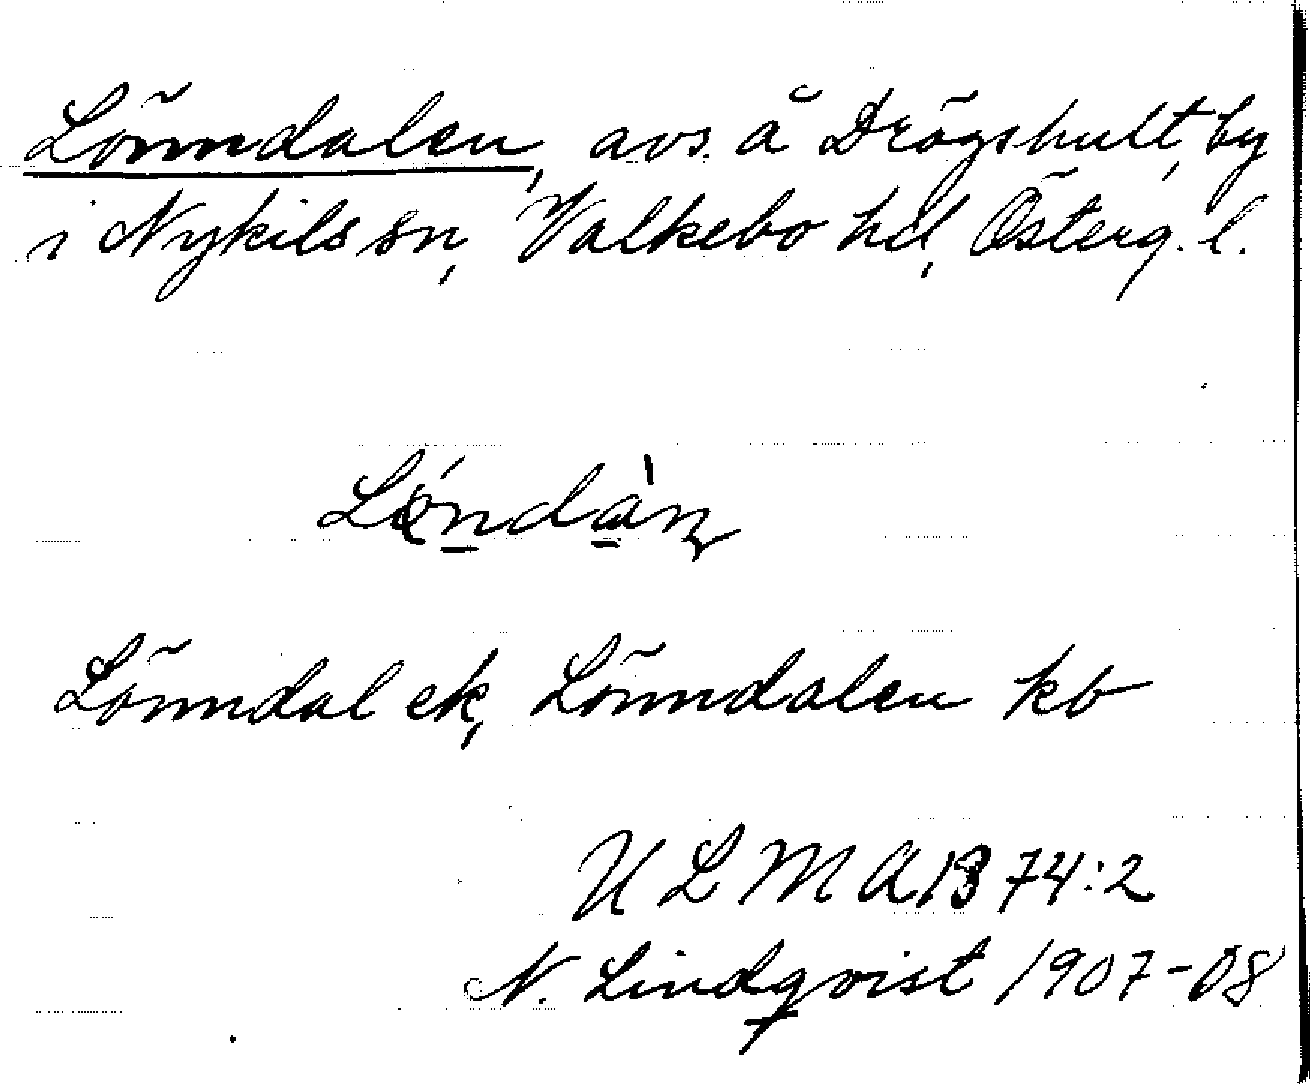 Lönndalen, avs. å Drögshult, by
i Nykils sn, Valkebo hd, Österg. l.
Löndàn
Lönndal ek, Lönndalen kb
ULMA 1374:2
N. Lindqvist 1907-08